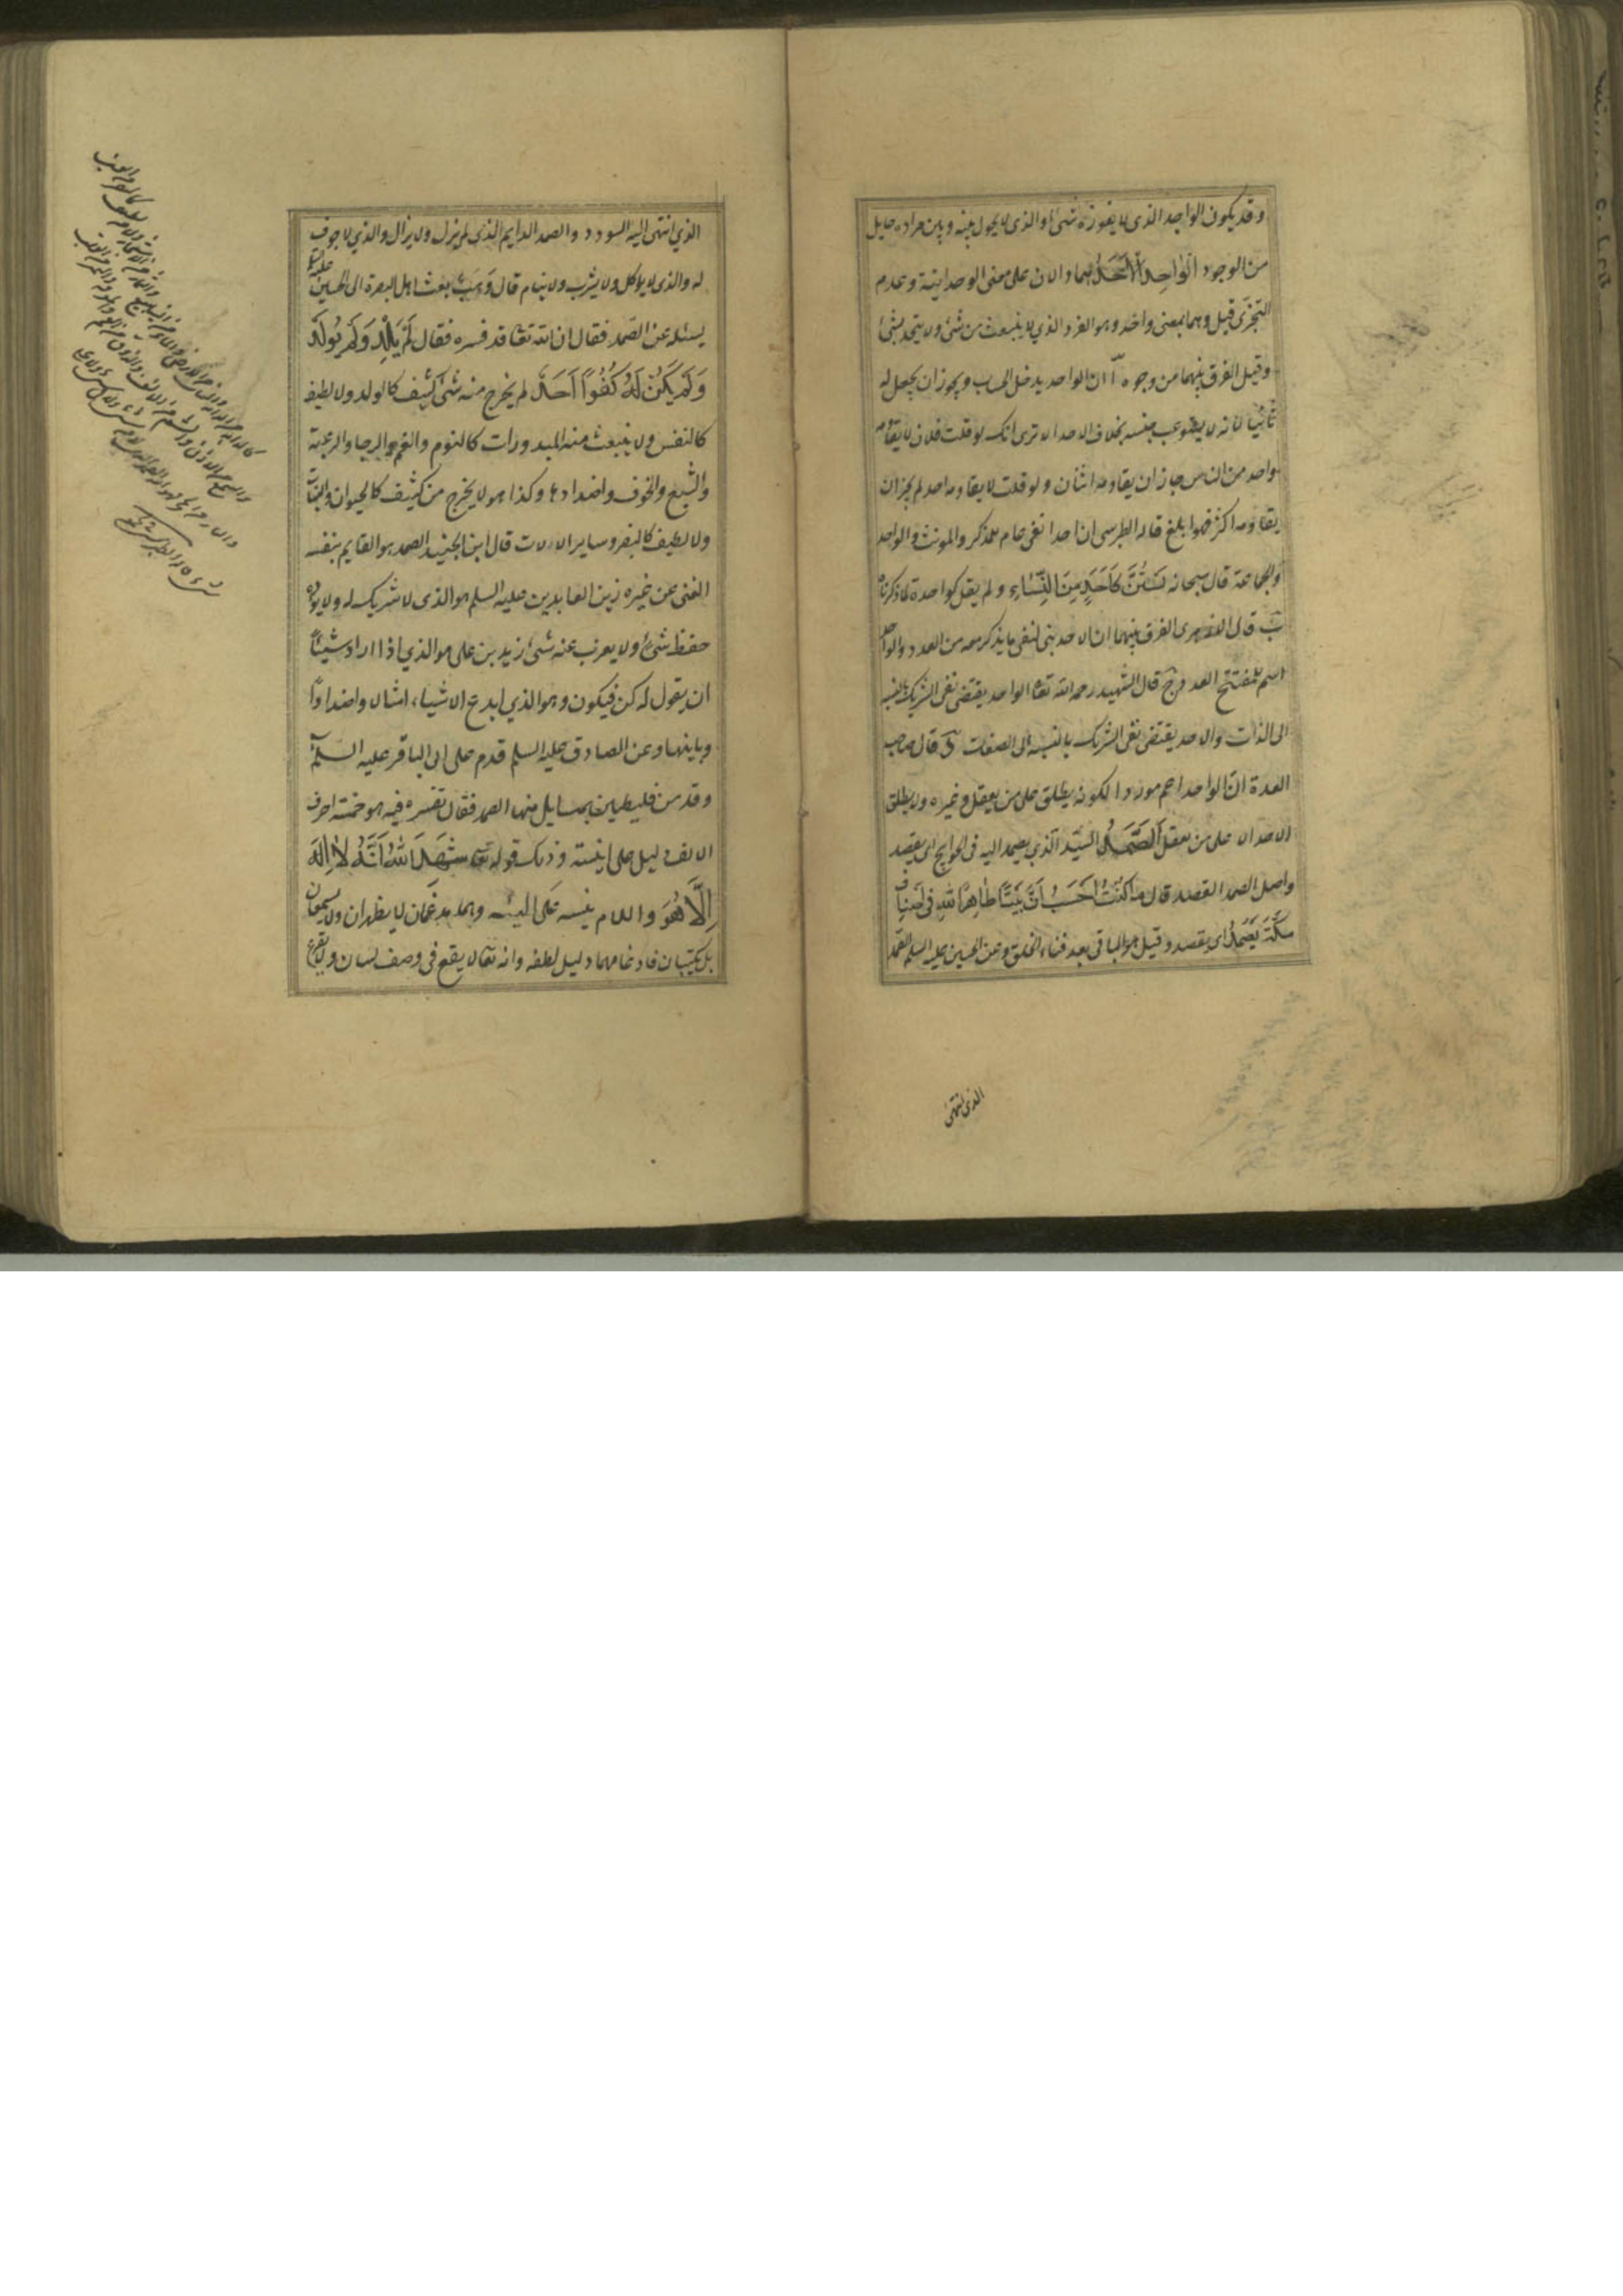 وقد يكون الواجد الذى لا يفوزه شىء او الذى لا يحول بينه وبين مراده حايل
من الوجود الواحد الاحد هما دالان على معنى الوحدانية وعدم
التجزى قيل وهما بمعنى واحد وهو الفرد الذي لا ينبعث من شئ ولا يتحد بشئ
وقيل الفرق بينهما من وجوه آ ان الواحد يدخل الحساب ويجوز ان يجعل له
ثانيا لانه لا يستوعب جنسه بخلاف الاحد الا ترى انك لو قلت فلان لا يقاومه
واحد من الناس جاز ان يقاومه اثنان ولو قلت لا يقاومه احد لم يجز ان
يقاومه اكثر فهو ابلغ قاله الطبرسى ان احدا نفى عام للمذكر والمونث والواحد
والجماعة قال سبحانه لستن كاحد من النساء ولم يقل كواحدة لما ذكرناه
ب قال الازهرى الفرق بينهما ان الاحد بنى لنفى ما يذكر معه من العدد والواحد
اسم لمفتتح العدد ج قال الشهيد رحمه الله تعالى الواحد يقتضى نفى الشريك بالنسبة
الى الذات والاحد يقتضى نفى الشريك بالنسبة الى الصفات د قال صاحب
العدة ان الواحد اعم موردا لكونه يطلق على من يعقل وغيره ولا يطلق
الاحد الا على من يعقل الصمد السيد الذي يصمد اليه فى الحوايج اى يقصد
واصل الصمد القصد قال ما كنت احسب ان بيتا طاهرا لله فى اكناف
مكة يصمد اى يقصد وقيل هو الباقى بعد فناء الخلق وعن الحسين عليه السلم الصمد
الذى انتهى
الذي انتهى اليه السودد والصمد الدايم الذي لم يزل ولا يزال والذي لا جوف
له والذى لا يوكل ولا يشرب ولا ينام قال وهب بعث اهل البصرة الى الحسين عليه السلم
يسئله عن الصمد فقال ان الله تعالى قد فسره فقال لم يلد ولم يولد
ولم يكن له كفوا احد لم يخرج منه شئ كثيف كالولد ولا لطيف
كالنفس ولا ينبعث منه البدورات كالنوم والغم والرجا والرغبة
والشبع والخوف واضدادها وكذا هو لا يخرج من كثيف كالحيوان والنبات
ولا لطيف كالبصر وساير الالات قال ابن الحنفية الصمد هو القايم بنفسه
الغنى عن غيره زين العابدين عليه السلم هو الذى لا شريك له ولا يؤده
حفظ شئ ولا يعزب عنه شئ زيد بن على هو الذي اذا اراد شيئا
ان يقول له كن فيكون وهو الذي ابدع الاشياء امثالا واضدادا
وباينها وعن الصادق عليه السلم قدم على ابى الباقر عليه السلم
وفد من فلسطين بمسايل منها الصمد فقال تفسره فيه هو خمسة احرف
الالف دليل على انيته وذلك قوله تعالى شهد الله انه لا اله
الا هو واللام تنبيه على الهيته وهما مدغمان لا يظهران ولا يسمعان
بل يكتبان فادغامهما دليل لطفه وانه تعالى لا يقع فى وصف لسان ولا يقرع